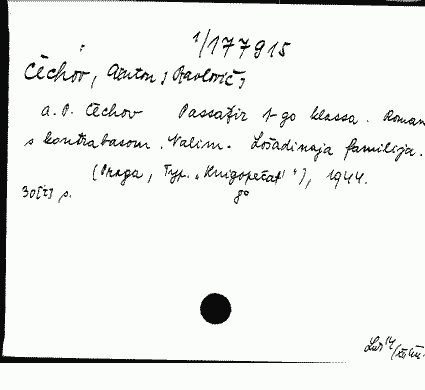 1/177915
Čechov, Anton Pavlovič
A. P. Čechov Passažir 1-go klassa. Roman
s kontrabasom. Nalim. Lošadinaja familija.
(Praga, Typ. "Knigopečat"), 1944.
30[2] p. go